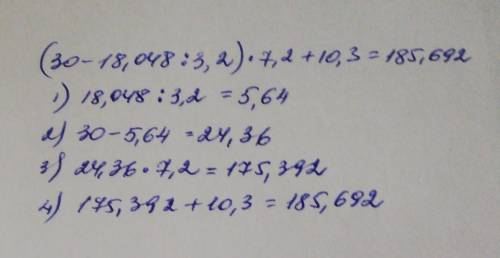 (30-18,048:3,2)·7,2+10,3=185,692
1) 18,048:3,2=5,64
2) 30-5,64=24,36
3) 24,36·7,2=175,392
4) 175,392+10,3=185,692